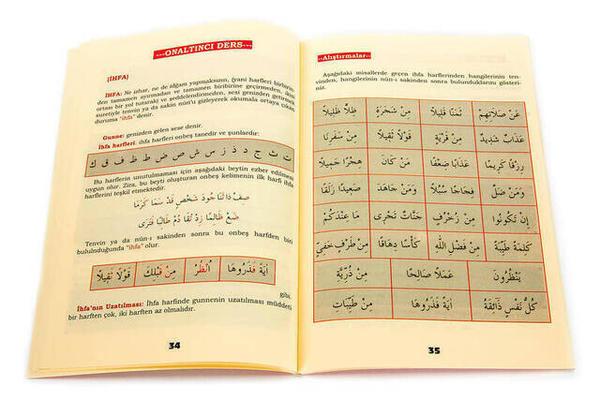 ---ONALTINCI DERS---
(İHFA)
İHFA: Ne izhar, ne de idgam yapmaksızın, (yani harfleri birbirinden tamamen ayırmadan ve tamamen biribirine geçirmeden, ikisi ortası bir yol tutarak) ve şeddelendirmeden, sesi genizden getirmek suretiyle tenvin ya da sakin nûn'u gizleyerek okumakla ortaya çıkan duruma "ihfa" denir.
Gunne: genizden gelen sese denir.
İhfa harfleri: ihfa harfleri onbeş tanedir ve şunlardır:
ت ث ج د ذ ز س ش ص ض ط ظ ف ق ك
Bu harflerin unutulmaması için aşağıdaki beytin ezber edilmesi
uygun olur. Zira, bu beyti oluşturan onbeş kelimenin ilk harfi ihfa
harflerini teşkil etmektedir.
صِفْ ذَا ثَنَا جُودَ شَخْصٍ قَدْ سَمَا كَرَمًا
ضَعْ ظَالِمًا زِدْ تُقًا دُمْ طَالِبًا فَتَرَى
Tenvin ya da nûn-ı sakinden sonra bu onbeş harfden biri
bulunduğunda "ihfa" olur.
آيَةً فَذَرُوهَا اُنْظُرْ مِنْ قَبْلِكَ قَوْلًا ثَقِيلًا
gibi.
İhfa'nın Uzatılması: İhfa harfinde gunnenin uzatılması müddeti
bir harften çok, iki harften az olmalıdır.
34
--Alıştırmalar--
Aşağıdaki misallerde geçen ihfa harflerinden hangilerinin tenvinden, hangilerinin nûn-ı sakinden sonra bulunduklarını gösteriniz.
عَنْ صَلَاتِهِمْ ثَمَنًا قَلِيلًا مِنْ شَجَرَةٍ ظِلًّا ظَلِيلًا
عَذَابٌ شَدِيدٌ مِنْ قَرْيَةٍ قَوْلًا ثَقِيلًا مِنْ سَفَرِنَا
رِزْقًا كَرِيمًا عَذَابًا ضِعْفًا مَنْ كَانَ هَجْرًا جَمِيلًا
وَمَنْ ضَلَّ فِجَاجًا سُبُلًا وَمَنْ جَاهَدَ صَعِيدًا زَلَقًا
إِنْ تَكُونُوا مِنْ زُخْرُفٍ جَنَّاتٌ تَجْرِي مَا عِنْدَكُمْ
كَلِمَةً طَيِّبَةً مِنْ فَضْلِ اللَّهِ كَأْسًا دِهَاقًا مِنْ طَرْفٍ خَفِيٍّ
يَنْظُرُونَ عَمَلًا صَالِحًا مِنْ ذُرِّيَّةِ
كُلُّ نَفْسٍ ذَائِقَةُ آيَةً فَذَرُوهَا مِنْ طَيِّبَاتِ
35